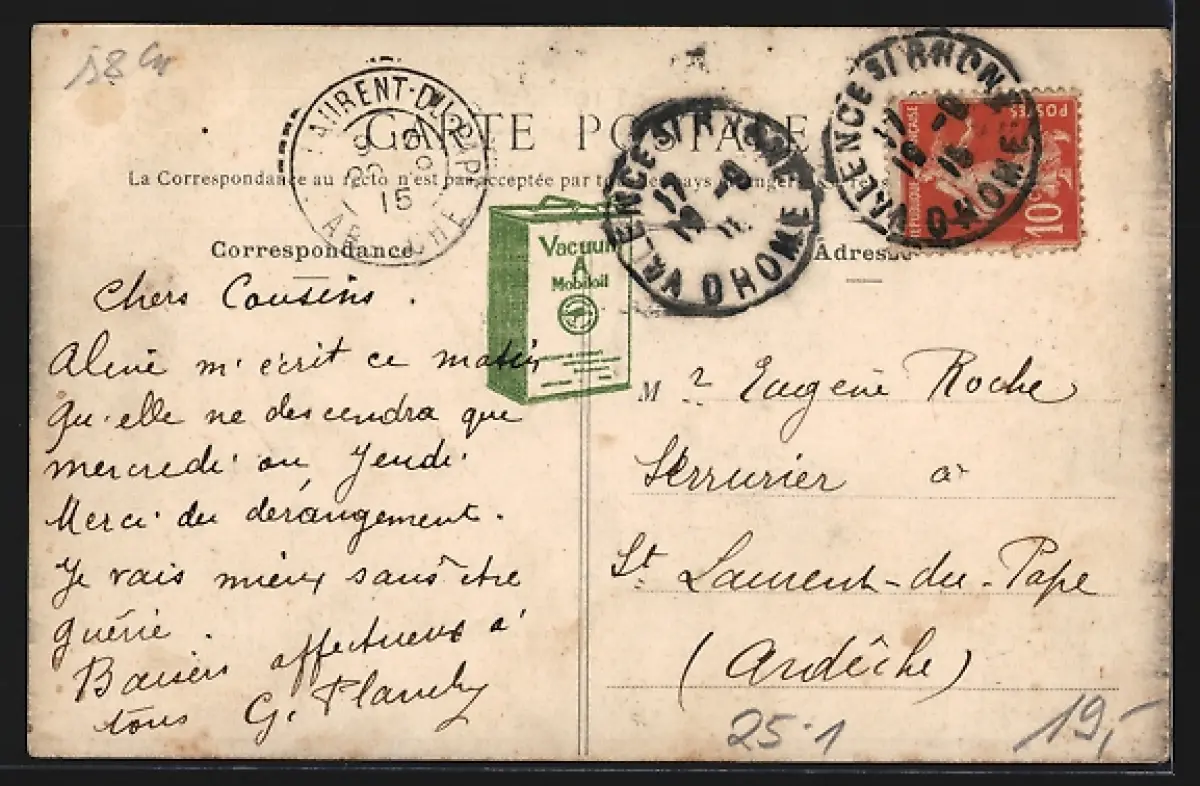 CARTE POSTALE
La Correspondance au recto n'est pas acceptée par tous les pays étrangers
Correspondance
Adresse
Vacuum
A
Mobiloil
LAURENT-DU-PAPE
15
ARDÈCHE
VALENCE S/ RHONE
17
DROME
VALENCE S/ RHONE
17
DROME
REPUBLIQUE FRANÇAISE
POSTES
10c
Chers Cousins.
Aliné m'écrit ce matin
qu'elle ne descendra que
mercredi ou Jeudi
Merci du dérangement.
Je vais mieux sans être
guérie.
Baisers affectueux à
tous G. Planchy
Mr Eugène Roche
Serrurier à
St Laurent-du-Pape
(Ardêche)
25-1
19,-